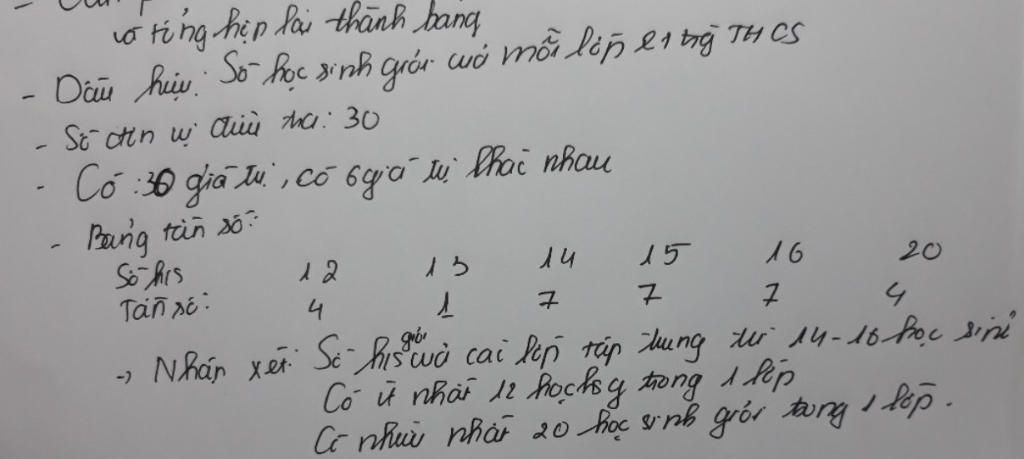 và tổng hợp lại thành bảng
- Dấu hiệu: Số học sinh giỏi của mỗi lớp ở 1 trg THCS
- Số đơn vị điều tra: 30
- Có: 30 giá trị, có 6 giá trị khác nhau
- Bảng tần số:
Số h/s 12 13 14 15 16 20
Tần số: 4 1 7 7 7 4
-> Nhận xét: Số h/s giỏi của các lớp tập trung từ 14-16 học sinh
Có ít nhất 12 học hsg trong 1 lớp
Có nhiều nhất 20 học sinh giỏi trong 1 lớp.